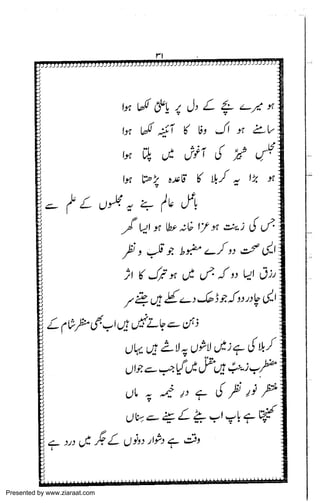 ۳۱
ہو میرے بچے کے دل پر یا علیؑ لکھا ہوا
سامنے ہو اک وفا کا آئینہ لکھا ہوا
مجلسِ شبیرؑ کی آغوش میں پلتا ہوا
ہو بڑا یہ کربلا کا قاعدہ پڑھتا ہوا
باعمل عالم بنے یہ مجلسوں کے علم سے
جس کی زینت ہو عزا خانہ عطا ہو ایسا گھر
ایسی صحت دو کرے مضبوط جو قلب و نظر
رزق ایسا دو کہ جس میں ہو تبرک کا اثر
ایسی چادر دو کہ جو ڈھک دے کھلے ہیں جتنے سر
ذہن سے جاتے نہیں ہیں اب بھی منظر شام کے
کربلا کی ہے زمیں لاشوں پہ لاشے ہیں یہاں
مضطرب زینبؑ ہیں مقتل میں گیا جب سے جواں
منتظر نورِ نظر کی ہے درِ خیمہ پہ ماں
کھینچتا ہے باپ اب بیٹے کے سینے سے سناں
وقت ہے دشوار دونوں کے جگر میں درد ہے
Presented by www.ziaraat.com